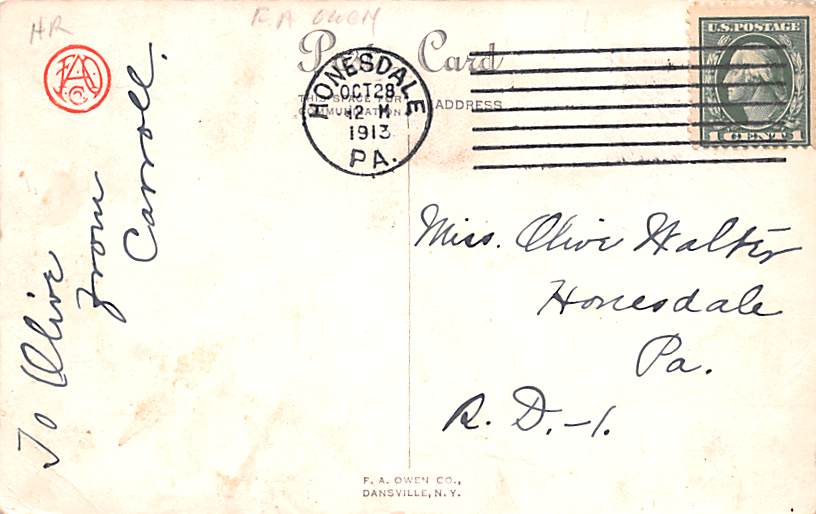 HR
F A OWEN
Post Card
THIS SPACE FOR
COMMUNICATION
ADDRESS
HONESDALE
OCT 28
12 M
1913
PA.
U.S. POSTAGE
1 CENT 1
FAO
Co
To Olive
From
Carroll.
Miss. Olive Walter
Honesdale
Pa.
R. D.-1.
F. A. OWEN CO.,
DANSVILLE, N. Y.